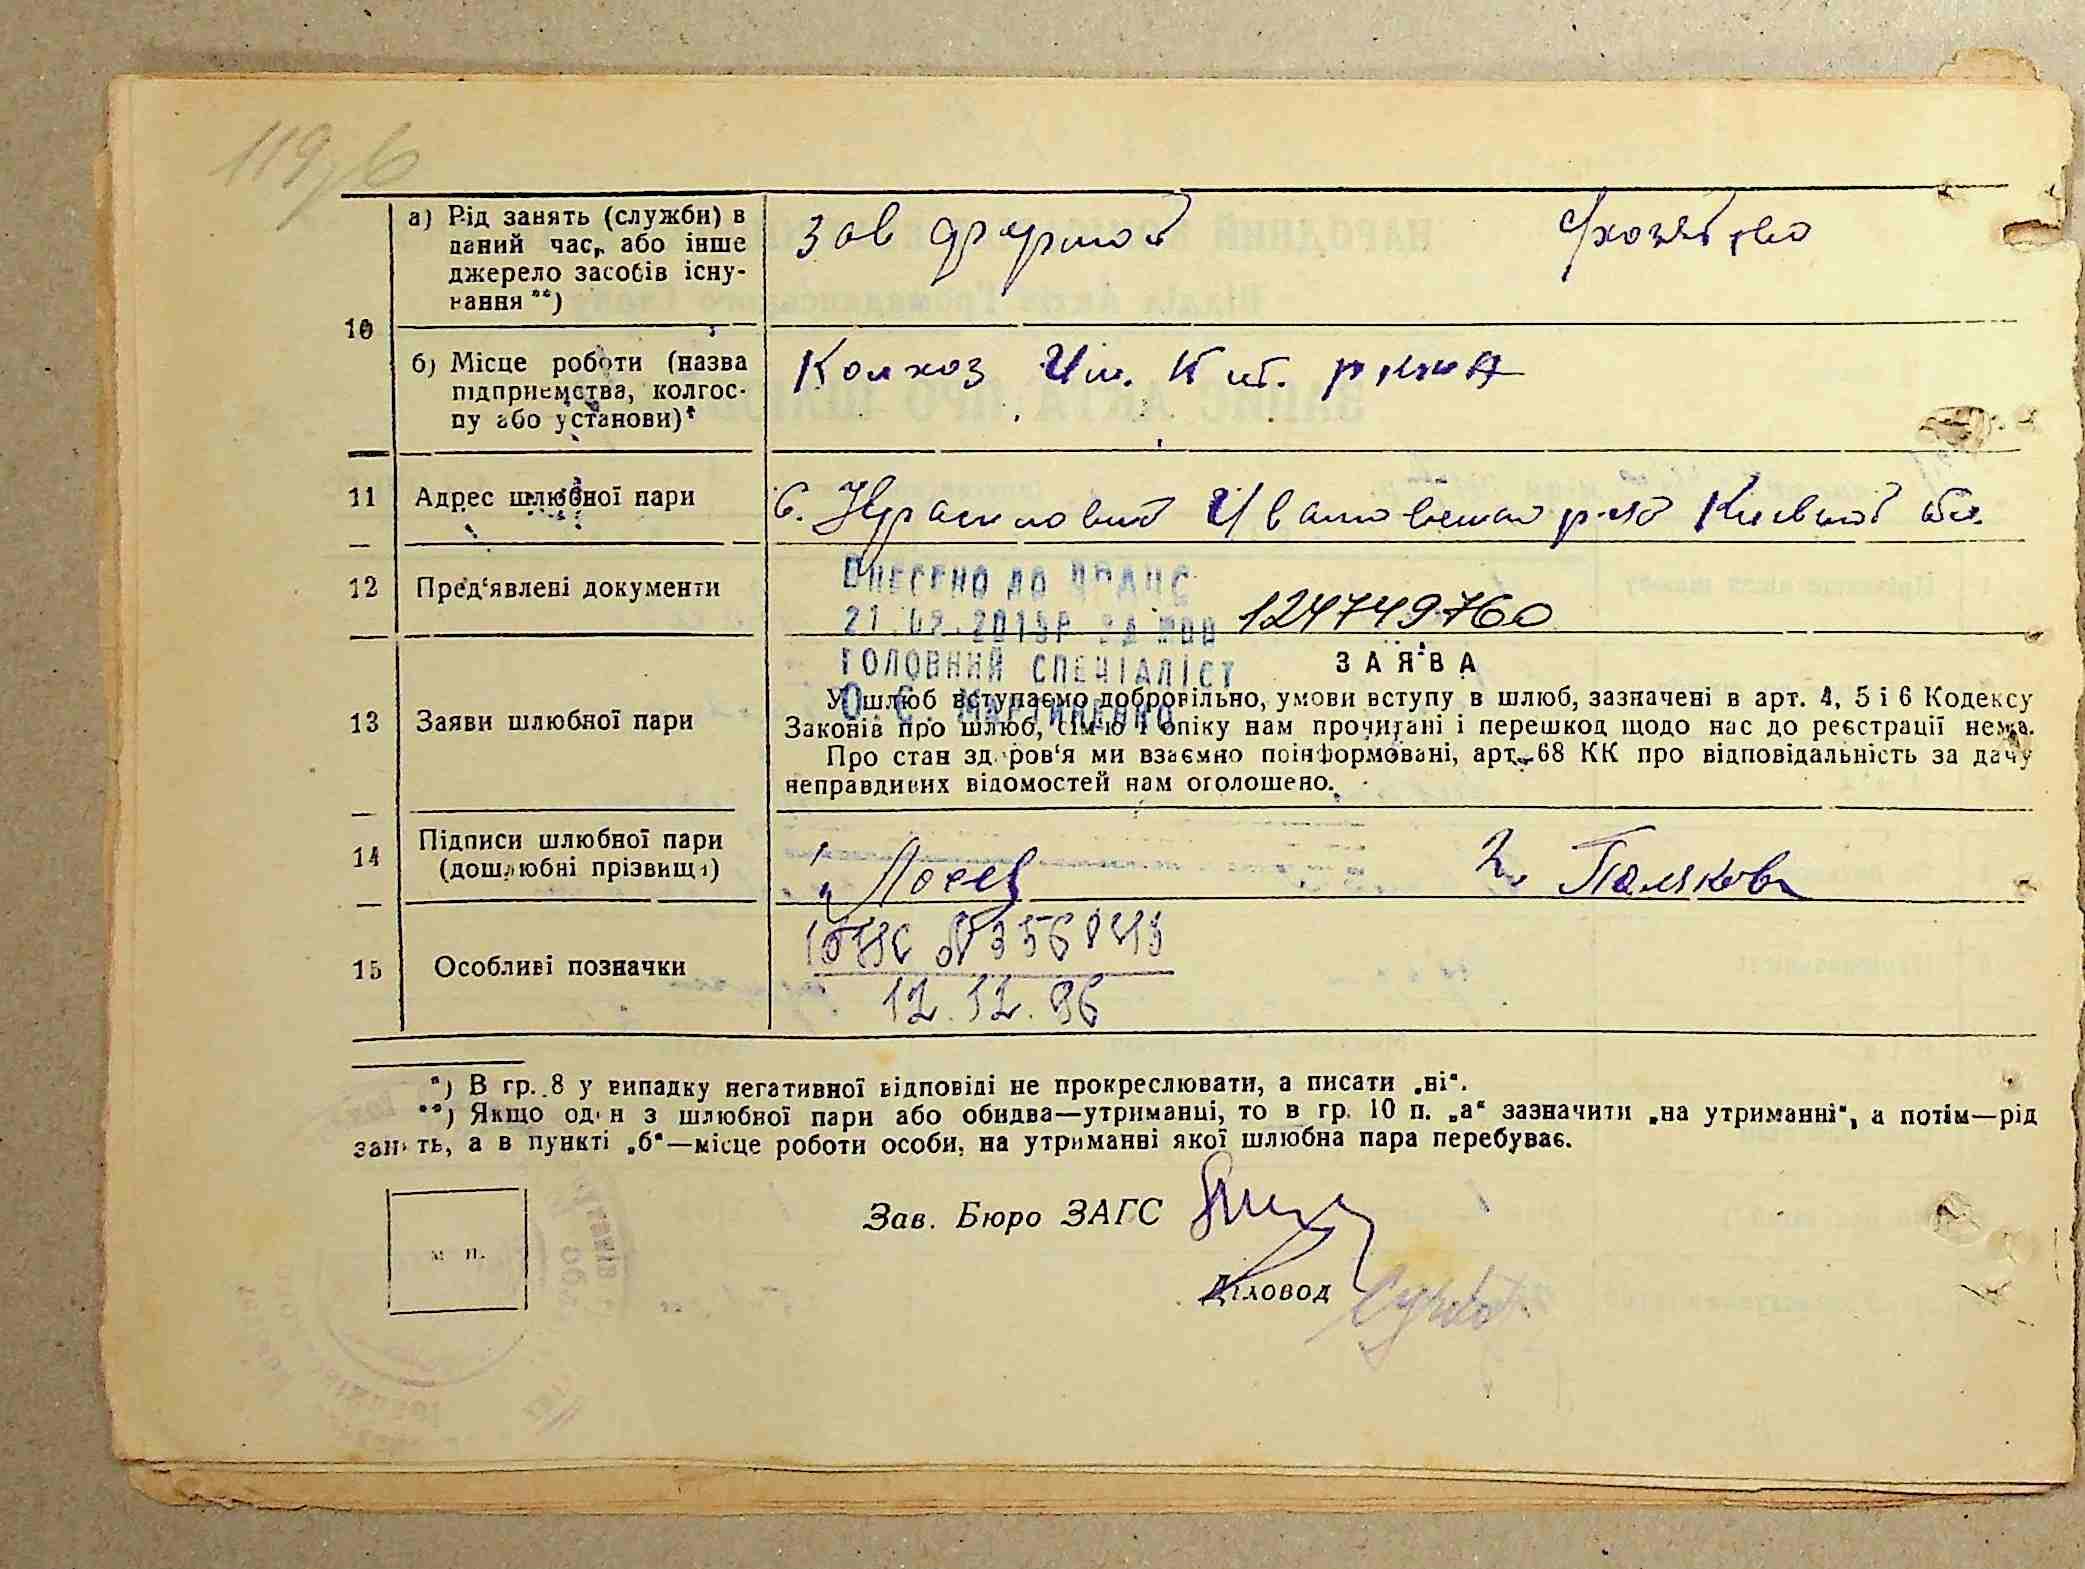 а) Рід занять (служби) в
даний час, або інше
джерело засобів існу-
вання **)
Зав фермой
хозяйство
10
б) Місце роботи (назва
підприємства, колгос-
пу або установи)*
Колхоз Им.
11 Адрес шлюбної пари
С. Красиловка Ивановского р-на Киевской обл.
12 Пред'явлені документи
ВНЕСЕНО ДО ДРАЦС
124749760
ГОЛОВНИЙ СПЕЦІАЛІСТ
О. Є. МАРТИНЕНКО
ЗАЯВА
13 Заяви шлюбної пари
У шлюб вступаємо добровільно, умови вступу в шлюб, зазначені в арт. 4, 5 і 6 Кодексу
Законів про шлюб, сім'ю і опіку нам прочитані і перешкод щодо нас до реєстрації нема.
Про стан здоров'я ми взаємно поінформовані, арт. 68 КК про відповідальність за дачу
неправдивих відомостей нам оголошено.
14 Підписи шлюбної пари
(дошлюбні прізвища)
1. Лосев
2. Полякова
15 Особливі позначки
12.12.96
*) В гр. 8 у випадку негативної відповіді не прокреслювати, а писати „ні“.
**) Якщо один з шлюбної пари або обидва—утриманці, то в гр. 10 п. „а“ зазначити „на утриманні“, а потім—рід
занять, а в пункті „б“—місце роботи особи, на утриманні якої шлюбна пара перебуває.
м п.
Зав. Бюро ЗАГС
Діловод